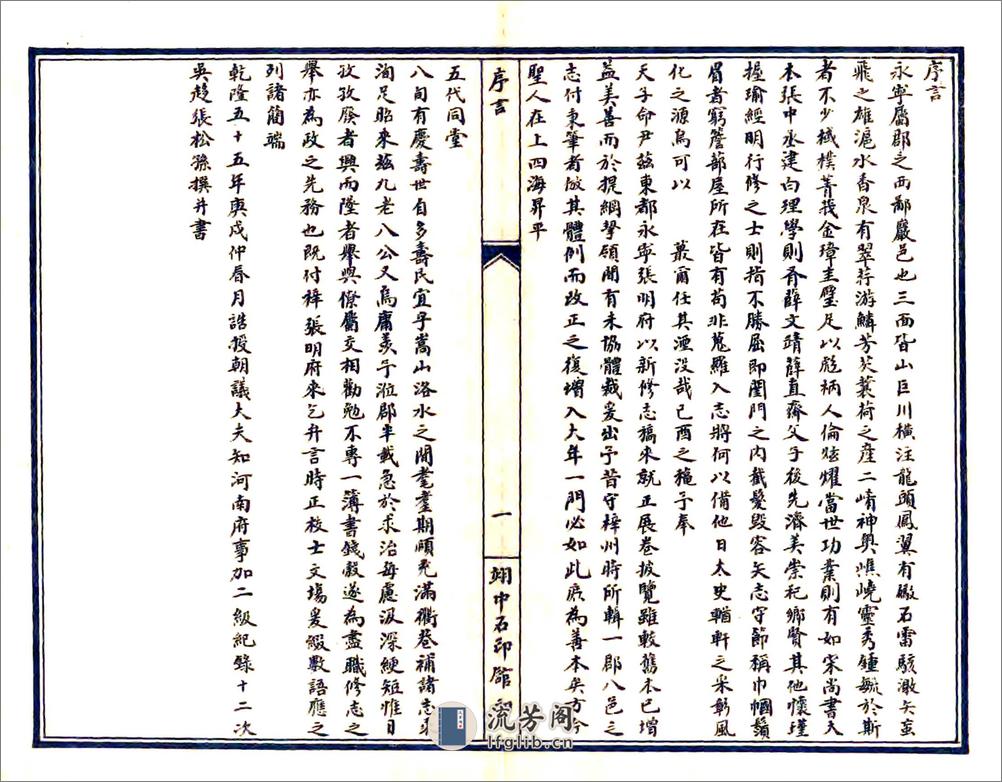 序言
永寧屬郡之西鄙嚴邑也三面皆山巨川橫注龍頭鳳翼有礟石雷駭激矢䖟
飛之雄滬水香泉有翠荇游鱗芳芡蓑荷之産二崤神奥嶕嶢靈秀鍾毓於斯
者不少棫樸菁莪金璋圭璧足以彪炳人倫炫耀當世功業則有如宋尚書大
本張中丞建白理學則有薛文靖薛直齋父子後先濟美崇祀鄉賢其他懷瑾
握瑜經明行修之士則指不勝屈即閨門之內截髮毀容矢志守節稱巾幗鬚
眉者窮簷蔀屋所在皆有苟非蒐羅入志將何以備他日太史輶軒之采彰風
化之源烏可以 蕞爾任其湮没哉己酉之龝予奉
天子命尹茲東都永寧張明府以新修志稿來就正展卷披覽雖較舊本已增
益美善而於提綱挈領間有未協體裁爰出予昔守梓州時所輯一郡八邑之
志付秉筆者倣其體例而改正之復增入大年一門必如此序為善本矣方今
聖人在上四海昇平
五代同堂
八旬有慶壽世自多壽民宜乎嵩山洛水之間耄耋期頤充滿衢巷補諸志乘
洵足昭來茲九老八公又烏庸羡予涖郡半載急於求治每慮汲深綆短惟日
孜孜廢者興而墜者舉興僚屬交相勸勉不專一簿書錢穀遂為盡職修志之
舉亦為政之先務也既付梓張明府來乞弁言時正校士文場爰綴數語應之
列諸簡端
乾隆五十五年庚戌仲春月誥授朝議大夫知河南府事加二級紀錄十二次
吳趨張松孫撰并書
序言
一
翊中石印館
流芳阁
lfglib.cn